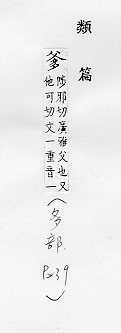 類篇
爹陟邪切廣雅父也又
他可切文一重音一
(多部
P239)